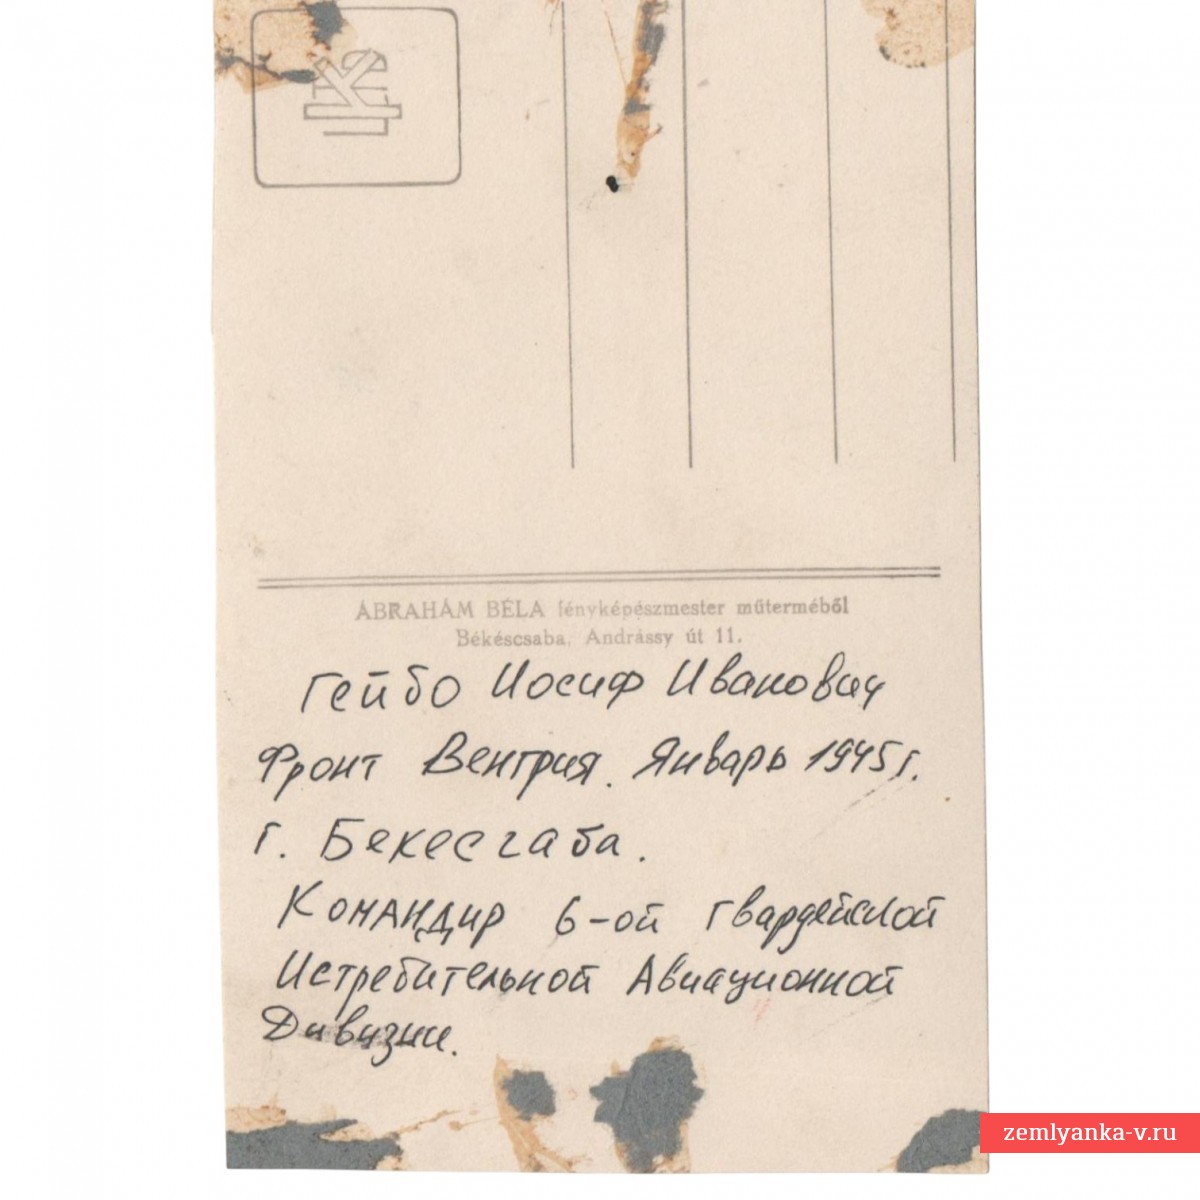 ÁBRAHÁM BÉLA fényképészmester műterméből
Békéscsaba, Andrássy út 11.
Гейбо Иосиф Иванович
Фронт Венгрия. Январь 1945 г.
г. Бекесгаба.
Командир 6-ой гвардейской
Истребительной Авиационной
Дивизии.
zemlyanka-v.ru